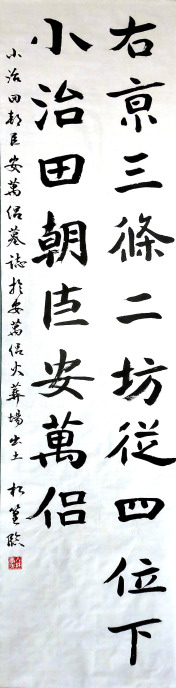 右京三條二坊従四位下
小治田朝臣安萬侶
小治田朝臣安萬侶墓誌於安萬侶火葬場出土